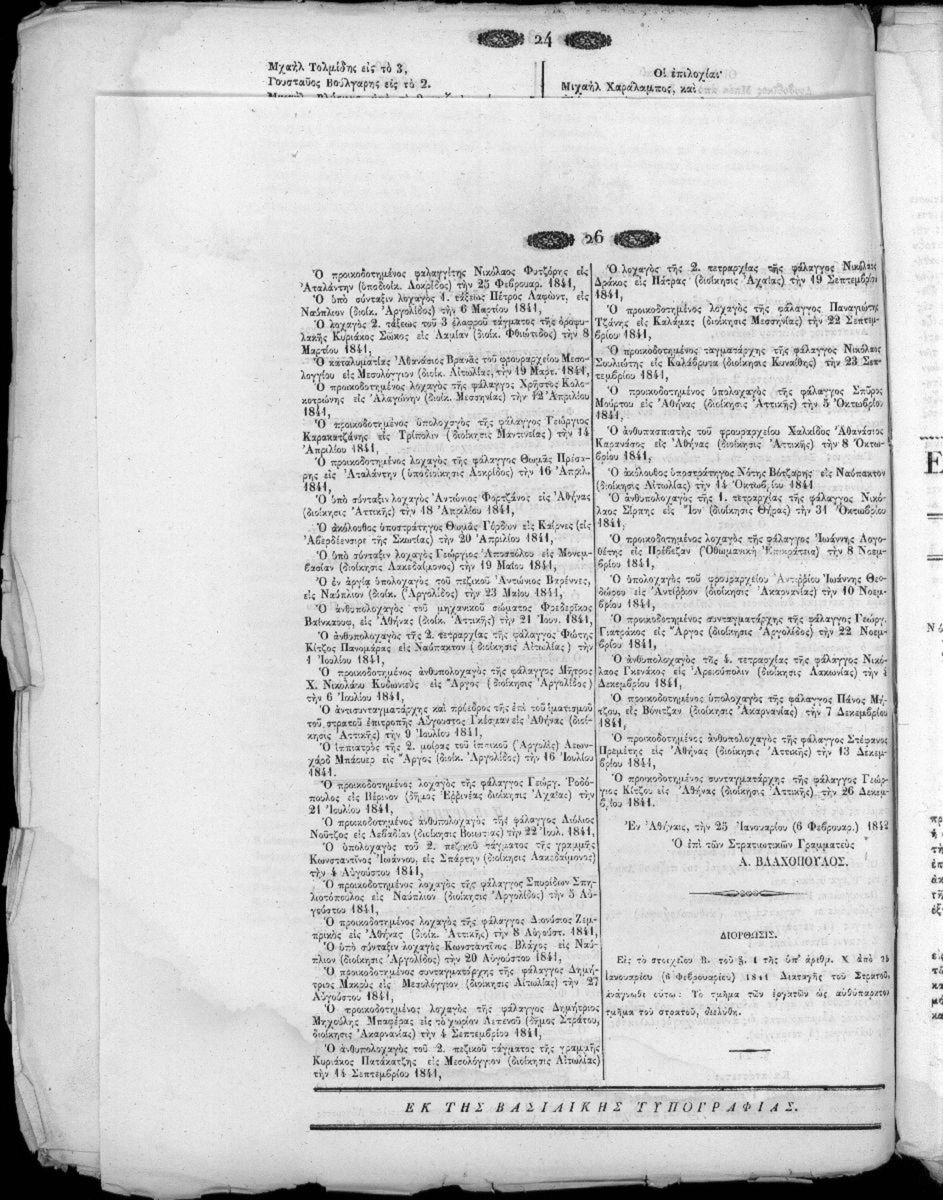 24
Μχαὴλ Τολμίδης εἰς τὸ 3,
Γουσταῦος Βούλγαρης εἰς τὸ 2.
Οἱ ἐπιλοχίαι
Μιχαὴλ Χαράλαμπος, καὶ
26
Ὁ προικοδοτημένος φαλαγγίτης Νικόλαος Φυτζόρης εἰς
Ἀταλάντην (ὑποδιοίκ. Λοκρίδος) τὴν 25 Φεβρουαρ. 1841,
Ὁ ὑπὸ σύνταξιν λοχαγὸς 1. τάξεως Πέτρος Λαφώντ, εἰς
Ναύπλιον (διοίκ. Ἀργολίδος) τὴν 6 Μαρτίου 1841,
Ὁ λοχαγὸς 2. τάξεως τοῦ 3 ἐλαφροῦ τάγματος τῆς ὁροφυ-
λακῆς Κυριάκος Σῶκος εἰς Λαμίαν (διοικ. Φθιώτιδος) τὴν 8
Μαρτίου 1841,
Ὁ καταλυματίας Ἀθανάσιος Βρανᾶς τοῦ φρουραρχείου Μεσο-
λογγίου εἰς Μεσολόγγιον (διοίκ. Αἰτωλίας, τὴν 19 Μαρτ. 1841,
Ὁ προικοδοτημένος λοχαγὸς τῆς φάλαγγος Χρῆστος Κολο-
κοτρώνης εἰς Ἀλαγώνην (διοικ. Μεσσηνίας) τὴν 12 Ἀπριλίου
1841,
Ὁ προικοδοτημένος ὑπολοχαγὸς τῆς φάλαγγος Γεώργιος
Καρακατζάνης εἰς Τρίπολιν (διοίκησις Μαντινείας) τὴν 14
Ἀπριλίου 1841,
Ὁ προικοδοτημένος λοχαγὸς τῆς φάλαγγος Θωμᾶς Πρέσα-
ρης εἰς Ἀταλάντην (ὑποδιοίκησις Λοκρίδος) τὴν 16 Ἀπριλ.
1841,
Ὁ ὑπὸ σύνταξιν λοχαγὸς Ἀντώνιος Φορτζάνος εἰς Ἀθήνας
(διοίκησις Ἀττικῆς) τὴν 18 Ἀπριλίου 1841,
Ὁ ἀκόλουθος ὑποστράτηγος Θωμᾶς Γόρδων εἰς Καίρνες (εἰς
Ἀβερδέενσιρε τῆς Σκωτίας) τὴν 20 Ἀπριλίου 1841,
Ὁ ὑπὸ σύνταξιν λοχαγὸς Γεώργιος Ἀποστόλου εἰς Μονεμ-
βασίαν (διοίκησις Λακεδαίμονος) τὴν 19 Μαΐου 1841,
Ὁ ἐν ἀργίᾳ ὑπολοχαγὸς τοῦ πεζικοῦ Ἀντώνιος Βαρέννες,
εἰς Ναύπλιον (διοίκ. (Ἀργολίδος) τὴν 23 Μαΐου 1841,
Ὁ ἀνθυπολοχαγὸς τοῦ μηχανικοῦ σώματος Φρεδερῖκος
Βαΐνκαουφ, εἰς Ἀθήνας (διοικ. Ἀττικῆς) τὴν 21 Ἰουν. 1841,
Ὁ ἀνθυπολοχαγὸς τῆς 2. τετραρχίας τῆς φάλαγγος Φώτης
Κίτζος Πανομάρας εἰς Ναύπακτον (διοίκησις Αἰτωλίας) τὴν
1 Ἰουλίου 1841,
Ὁ προικοδοτημένος ἀνθυπολοχαγὸς τῆς φάλαγγος Μῆτρος
Χ. Νικολάου Κυδωνιεὺς εἰς Ἄργος (διοίκησις Ἀργολίδος)
τὴν 6 Ἰουλίου 1841,
Ὁ ἀντισυνταγματάρχης καὶ πρόεδρος τῆς ἐπὶ τοῦ ἱματισμοῦ
τοῦ στρατοῦ ἐπιτροπῆς Αὔγουστος Γκέσμαν εἰς Ἀθήνας (διοί-
κησις Ἀττικῆς) τὴν 9 Ἰουλίου 1841,
Ὁ ἱππιατρὸς τῆς 2. μοίρας τοῦ ἱππικοῦ (Ἀργολὶς) Λεων-
χάρδ Μπάουερ εἰς Ἄργος (διοίκ. Ἀργολίδος) τὴν 16 Ἰουλίου
1841.
Ὁ προικοδοτημένος λοχαγὸς τῆς φάλαγγος Γεώργ. Ῥοδό-
πουλος εἰς Βέρινον (δῆμος Ἐρρινέας διοίκησις Ἀχαΐας) τὴν
21 Ἰουλίου 1841,
Ὁ προικοδοτημένος ἀνθυπολοχαγὸς τῆς φάλαγγος Λιόλιος
Νούτζος εἰς Λεβαδίαν (διοίκησις Βοιωτίας) τὴν 22 Ἰουλ. 1841,
Ὁ ὑπολοχαγὸς τοῦ 2. πεζικοῦ τάγματος τῆς γραμμῆς
Κωνσταντῖνος Ἰωάννου, εἰς Σπάρτην (διοίκησις Λακεδαίμονος)
τὴν 4 Αὐγούστου 1841,
Ὁ προικοδοτημένος λοχαγὸς τῆς φάλαγγος Σπυρίδων Σπη-
λιοτόπουλος εἰς Ναύπλιον (διοίκησις Ἀργολίδος) τὴν 5 Αὐ-
γούστου 1841,
Ὁ προικοδοτημένος λοχαγὸς τῆς φάλαγγος Διονύσιος Ζεμ-
πρικὸς εἰς Ἀθήνας (διοίκ. Ἀττικῆς) τὴν 8 Αὐγούστ. 1841,
Ὁ ὑπὸ σύνταξιν λοχαγὸς Κωνσταντῖνος Βλάχος εἰς Ναύ-
πλιον (διοίκησις Ἀργολίδος) τὴν 20 Αὐγούστου 1841,
Ὁ προικοδοτημένος συνταγματάρχης τῆς φάλαγγος Δημή-
τριος Μακρὺς εἰς Μεσολόγγιον (διοίκησις Αἰτωλίας) τὴν 27
Αὐγούστου 1841,
Ὁ προικοδοτημένος λοχαγὸς τῆς φάλαγγος Δημήτριος
Μηχούλης Μπαφέρας εἰς τὸ χωρίον Λεπενοῦ (δῆμος Στράτου,
διοίκησις Ἀκαρνανίας) τὴν 4 Σεπτεμβρίου 1841,
Ὁ ἀνθυπολοχαγὸς τοῦ 2. πεζικοῦ τάγματος τῆς γραμμῆς
Κυριάκος Πατακατζῆς εἰς Μεσολόγγιον (διοίκησις Αἰτωλίας)
τὴν 14 Σεπτεμβρίου 1841,
Ὁ λοχαγὸς τῆς 2. τετραρχίας τῆς φάλαγγος Νικόλαος
Δράκος εἰς Πάτρας (διοίκησις Ἀχαΐας) τὴν 19 Σεπτεμβρίου
1841,
Ὁ προικοδοτημένος λοχαγὸς τῆς φάλαγγος Παναγιώτης
Τζάνης εἰς Καλάμας (διοίκησις Μεσσηνίας) τὴν 22 Σεπτεμ-
βρίου 1841,
Ὁ προικοδοτημένος ταγματάρχης τῆς φάλαγγος Νικόλαος
Σουλιώτης εἰς Καλάβρυτα (διοίκησις Κυναίθης) τὴν 23 Σε-
πτεμβρίου 1841,
Ὁ προικοδοτημένος ὑπολοχαγὸς τῆς φάλαγγος Σπῦρος
Μούρτου εἰς Ἀθήνας (διοίκησις Ἀττικῆς) τὴν 5 Ὀκτωβρίου
1841.
Ὁ ἀνθυπασπιστὴς τοῦ φρουραρχείου Χαλκίδος Ἀθανάσιος
Καρανάσος εἰς Ἀθήνας (διοίκησις Ἀττικῆς) τὴν 8 Ὀκτω-
βρίου 1841,
Ὁ ἀκόλουθος ὑποστράτηγος Νότης Βότζαρης εἰς Ναύπακτον
(διοίκησις Αἰτωλίας) τὴν 14 Ὀκτωβρίου 1841
Ὁ ἀνθυπολοχαγὸς τῆς 1. τετραρχίας τῆς φάλαγγος Νικό-
λαος Σίρπης εἰς Ἴον (διοίκησις Θήρας) τὴν 31 Ὀκτωβρίου
1841,
Ὁ προικοδοτημένος λοχαγὸς τῆς φάλαγγος Ἰωάννης Λογο-
θέτης εἰς Πρέβεζαν (Ὀθωμανικὴ Ἐπικράτεια) τὴν 8 Νοεμ-
βρίου 1841,
Ὁ ὑπολοχαγὸς τοῦ φρουραρχείου Ἀντιρρίου Ἰωάννης Θεο-
δώρου εἰς Ἀντίρριον (διοίκησις Ἀκαρνανίας) τὴν 10 Νοεμ-
βρίου 1841,
Ὁ προικοδοτημένος συνταγματάρχης τῆς φάλαγγος Γεώργ.
Γιατράκος εἰς Ἄργος (διοίκησις Ἀργολίδος) τὴν 22 Νοεμ-
βρίου 1841,
Ὁ ἀνθυπολοχαγὸς τῆς 4. τετραρχίας τῆς φάλαγγος Νικό-
λαος Γκενάκος εἰς Ἀρειούπολιν (διοίκησις Λακωνίας) τὴν 4
Δεκεμβρίου 1841,
Ὁ προικοδοτημένος ὑπολοχαγὸς τῆς φάλαγγος Πάνος Μή-
τζου, εἰς Βόνιτζαν (διοίκησις Ἀκαρνανίας) τὴν 7 Δεκεμβρίου
1841,
Ὁ προικοδοτημένος ἀνθυπολοχαγὸς τῆς φάλαγγος Στέφανος
Πρεμέτης εἰς Ἀθήνας (διοίκησις Ἀττικῆς) τὴν 13 Δεκεμ-
βρίου 1841,
Ὁ προικοδοτημένος συνταγματάρχης τῆς φάλαγγος Γεώρ-
γιος Κίτζου εἰς Ἀθήνας (διοίκησις Ἀττικῆς) τὴν 26 Δεκεμ-
βρίου 1841.
Ἐν Ἀθήναις, τὴν 25 Ἰανουαρίου (6 Φεβρουαρ.) 1842
Ὁ ἐπὶ τῶν Στρατιωτικῶν Γραμματεὺς
Α. ΒΛΑΧΟΠΟΥΛΟΣ.
ΔΙΟΡΘΩΣΙΣ.
Εἰς τὸ στοιχεῖον Β. τοῦ §. 1 τῆς ὑπ' ἀριθμ. Χ ἀπὸ 25
Ἰανουαρίου (6 Φεβρουαρίου) 1841 Διαταγῆς τοῦ Στρατοῦ,
ἀνάγνωθι οὕτω: Τὸ τμῆμα τῶν ἐργατῶν ὡς αὐθύπαρκτον
τμῆμα τοῦ στρατοῦ, διελύθη.
ΕΚ ΤΗΣ ΒΑΣΙΛΙΚΗΣ ΤΥΠΟΓΡΑΦΙΑΣ.